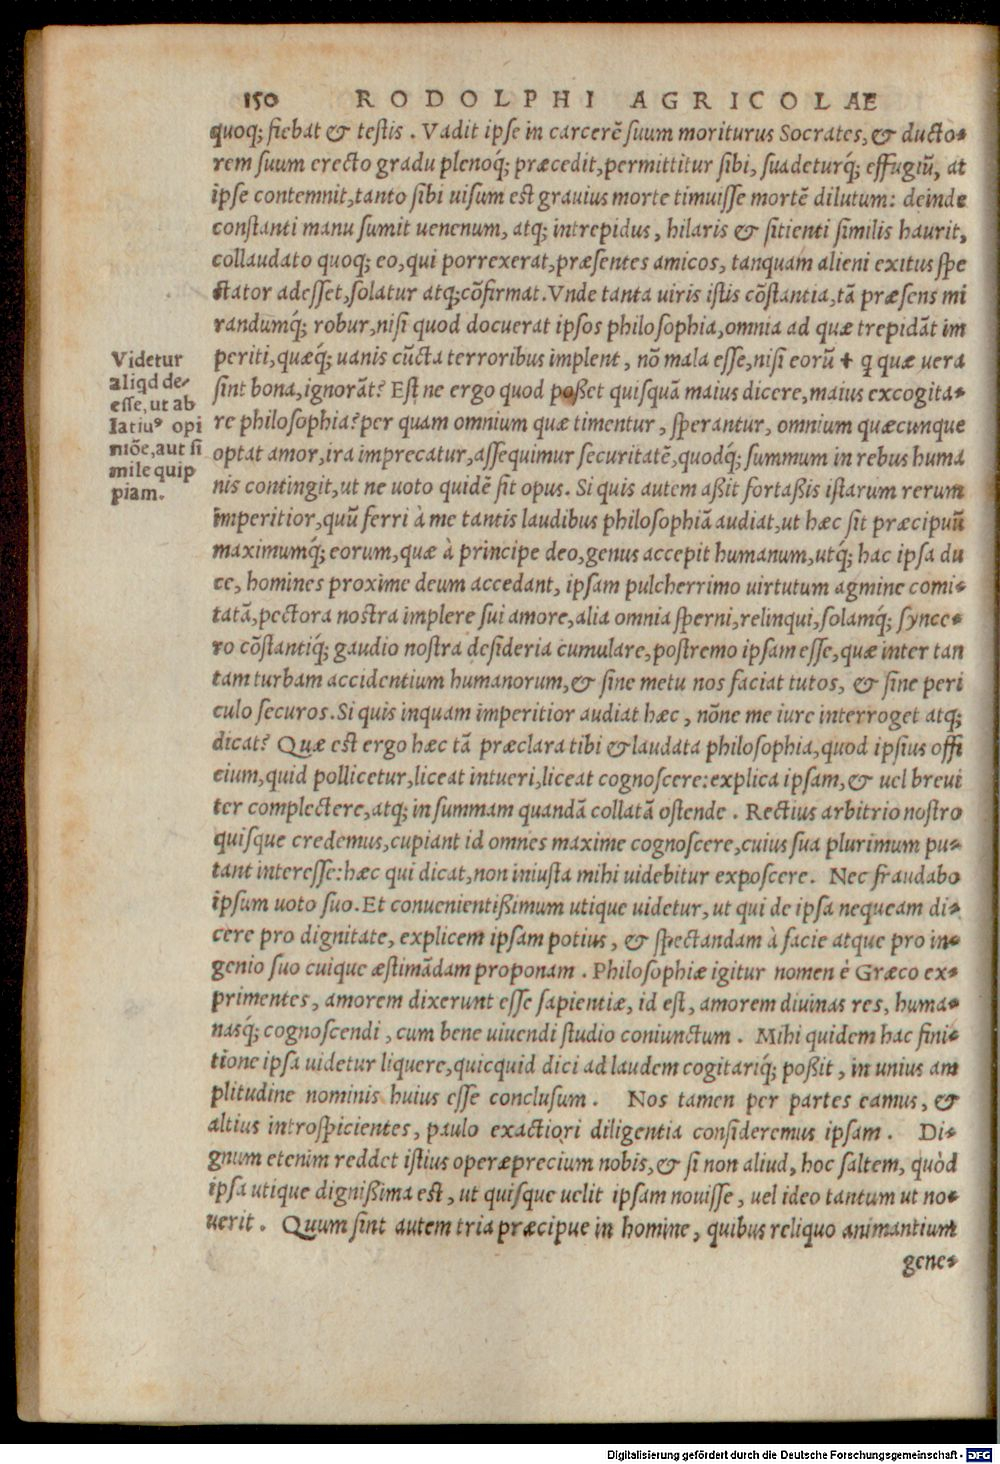 150 RODOLPHI AGRICOLAE
quoq; fiebat & testis. Vadit ipse in carcerẽ suum moriturus Socrates, & ducto-
rem suum erecto gradu plenoq́; præcedit, permittitur sibi, suadeturq́; effugiũ, at
ipse contemnit, tanto sibi uisum est grauius morte timuisse mortẽ dilutum: deinde
constanti manu sumit uenenum, atq; intrepidus, hilaris & sitienti similis haurit,
collaudato quoq; eo, qui porrexerat, præsentes amicos, tanquam alieni exitus spe
ctator adesset, solatur atq; cõfirmat. Vnde tanta uiris istis cõstantia, tã præsens mi
randumq́; robur, nisi quod docuerat ipsos philosophia, omnia ad quæ trepidãt im
periti, quæq́; uanis cũcta terroribus implent, nõ mala esse, nisi eorũ + q quæ uera
sint bona, ignorãt? Est ne ergo quod poßet quisquã maius dicere, maius excogita-
re philosophia? per quam omnium quæ timentur, sperantur, omnium quæcunque
optat amor, ira imprecatur, assequimur securitatẽ, quodq́; summum in rebus huma
nis contingit, ut ne uoto quidẽ sit opus. Si quis autem aßit fortaßis istarum rerum
imperitior, quũ ferri à me tantis laudibus philosophiã audiat, ut hæc sit præcipuũ
maximumq́; eorum, quæ à principe deo, genus accepit humanum, utq́; hac ipsa du
ce, homines proxime deum accedant, ipsam pulcherrimo uirtutum agmine comi-
tatã, pectora nostra implere sui amore, alia omnia sperni, relinqui, solamq́; synce-
ro cõstantiq́; gaudio nostra desideria cumulare, postremo ipsam esse, quæ inter tan
tam turbam accidentium humanorum, & sine metu nos faciat tutos, & sine peri
culo securos. Si quis inquam imperitior audiat hæc, nõne me iure interroget atq;
dicat? Quæ est ergo hæc tã præclara tibi & laudata philosophia, quod ipsius offi
cium, quid pollicetur, liceat intueri, liceat cognoscere: explica ipsam, & uel breui
ter complectere, atq; in summam quandã collatã ostende. Rectius arbitrio nostro
quisque credemus, cupiant id omnes maxime cognoscere, cuius sua plurimum pu-
tant interesse: hæc qui dicat, non iniusta mihi uidebitur exposcere. Nec fraudabo
ipsum uoto suo. Et conuenientißimum utique uidetur, ut qui de ipsa nequeam di-
cere pro dignitate, explicem ipsam potius, & spectandam à facie atque pro in-
genio suo cuique æstimãdam proponam. Philosophiæ igitur nomen è Græco ex-
primentes, amorem dixerunt esse sapientiæ, id est, amorem diuinas res, huma-
nasq́; cognoscendi, cum bene uiuendi studio coniunctum. Mihi quidem hac fini-
tione ipsa uidetur liquere, quicquid dici ad laudem cogitariq́; poßit, in unius am
plitudine nominis huius esse conclusum. Nos tamen per partes eamus, &
altius introspicientes, paulo exactiori diligentia consideremus ipsam. Di-
gnum etenim reddet istius operæprecium nobis, & si non aliud, hoc saltem, quòd
ipsa utique dignißima est, ut quisque uelit ipsam nouisse, uel ideo tantum ut no-
uerit. Quum sint autem tria præcipue in homine, quibus reliquo animantium
gene-
Videtur
aliqd de-
esse, ut ab
latiu⁹ opi
niõe, aut si
mile quip
piam.
Digitalisierung gefördert durch die Deutsche Forschungsgemeinschaft - DFG